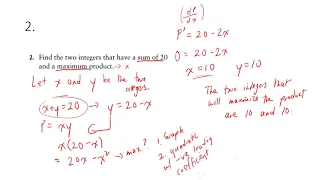 2.
2. Find the two integers that have a sum of 20
and a maximum product. → x
Let x and y be the two
integers.
x+y=20 → y = 20-x
P = xy
x(20-x)
= 20x - x² → max?
1. Graph
2. quadratic
w/ -ve leading
coefficient
(dP/dx)
P' = 20 - 2x
0 = 20 - 2x
x = 10 y = 10
The two integers that
will maximize the product
are 10 and 10.